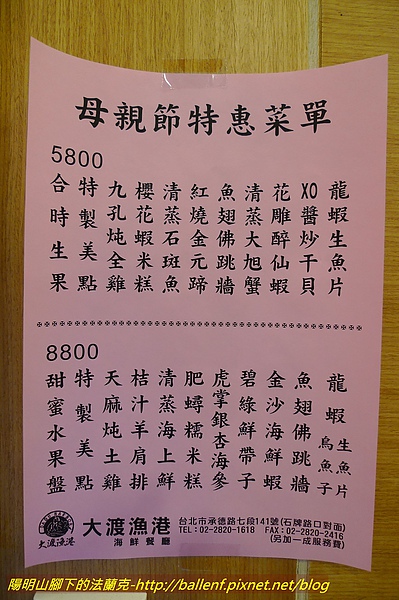 母親節特惠菜單
5800
龍蝦生魚片
XO醬炒干貝
花雕醉仙蝦
清蒸大旭蟹
魚翅佛跳牆
紅燒金元蹄
清蒸石斑魚
櫻花蝦米糕
九孔炖全雞
特製美點
合時生果
8800
龍蝦生魚片烏魚子
魚翅佛跳牆
金沙海鮮蝦
碧綠鮮帶子
虎掌銀杏海參
肥蟳糯米糕
清蒸海上鮮
桔汁羊肩排
天麻炖土雞
特製美點
甜蜜水果盤
大渡漁港
大渡漁港
海鮮餐廳
台北市承德路七段141號(石牌路口對面)
TEL：02-2820-1618 FAX：02-2820-2416
(另加一成服務費)
陽明山腳下的法蘭克-http://ballenf.pixnet.net/blog